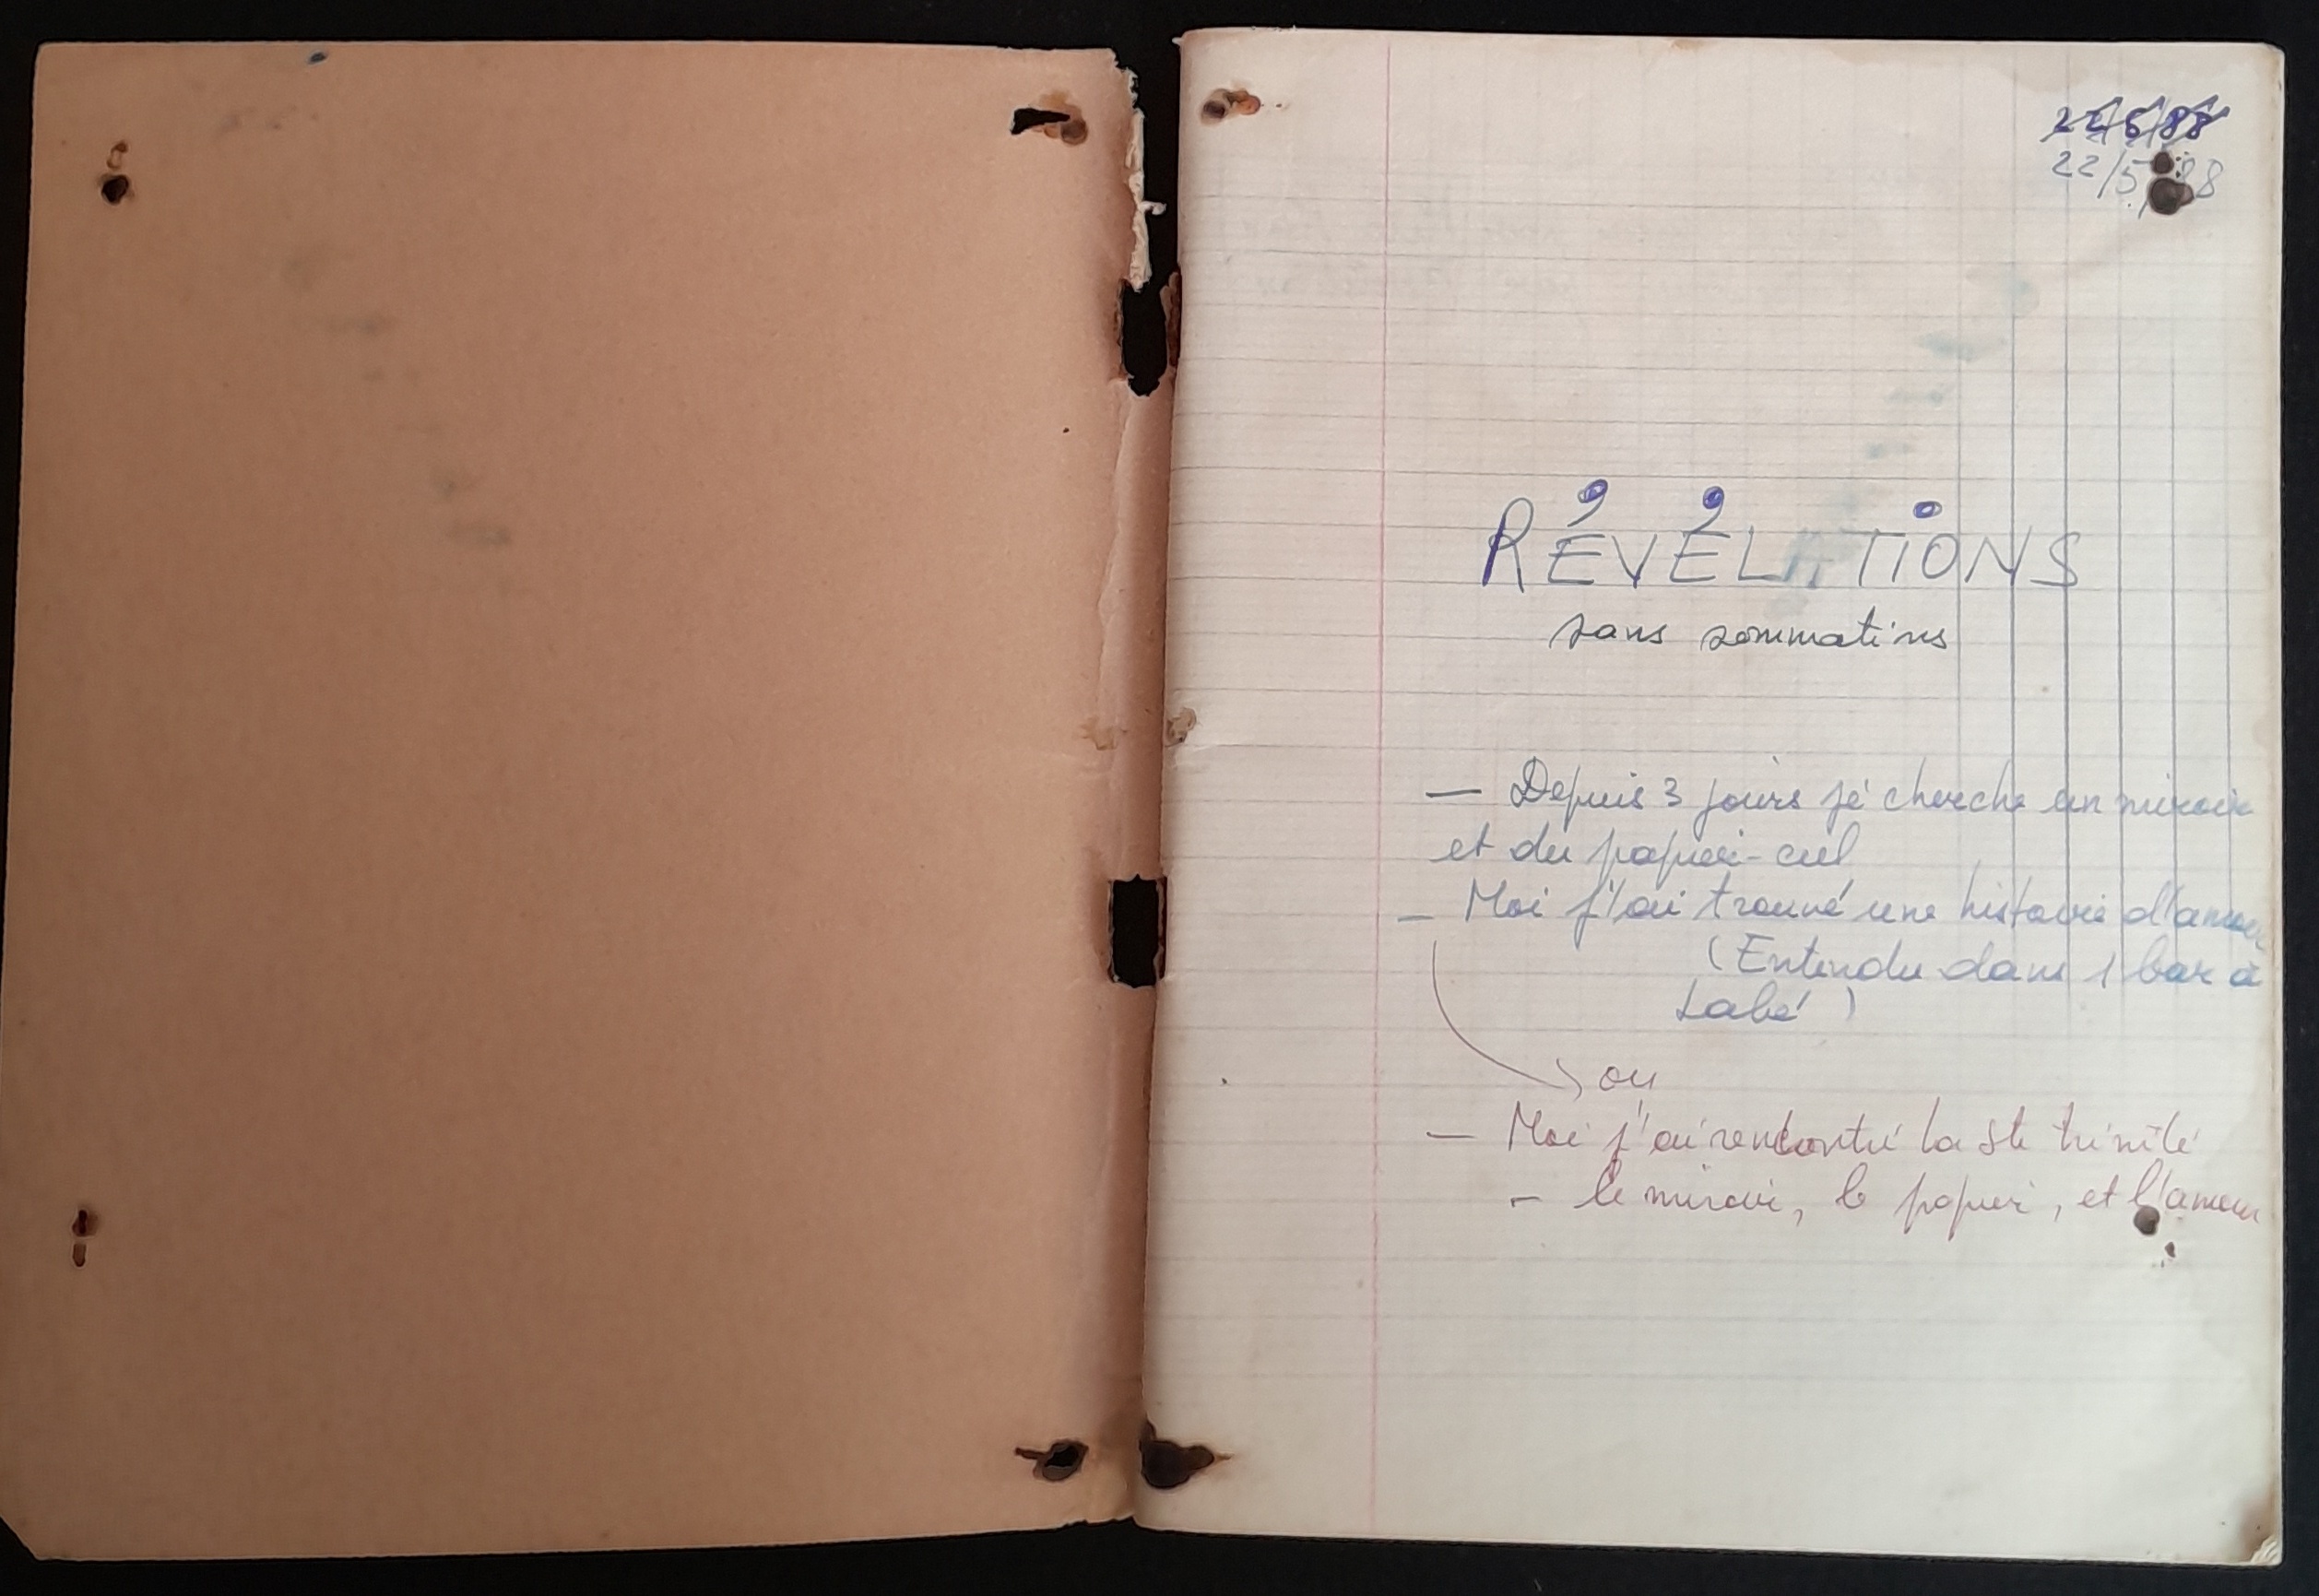 22/5/88
22/5/88
RÉVÉLATIONS
sans sommations
— Depuis 3 jours je cherche un miroir
et du papier-cul
— Moi j'ai trouvé une histoire d'amour
(Entendu dans 1 bar à
Labé)
ou
— Moi j'ai rencontré la Ste trinité
- le miroir, le papier, et l'amour